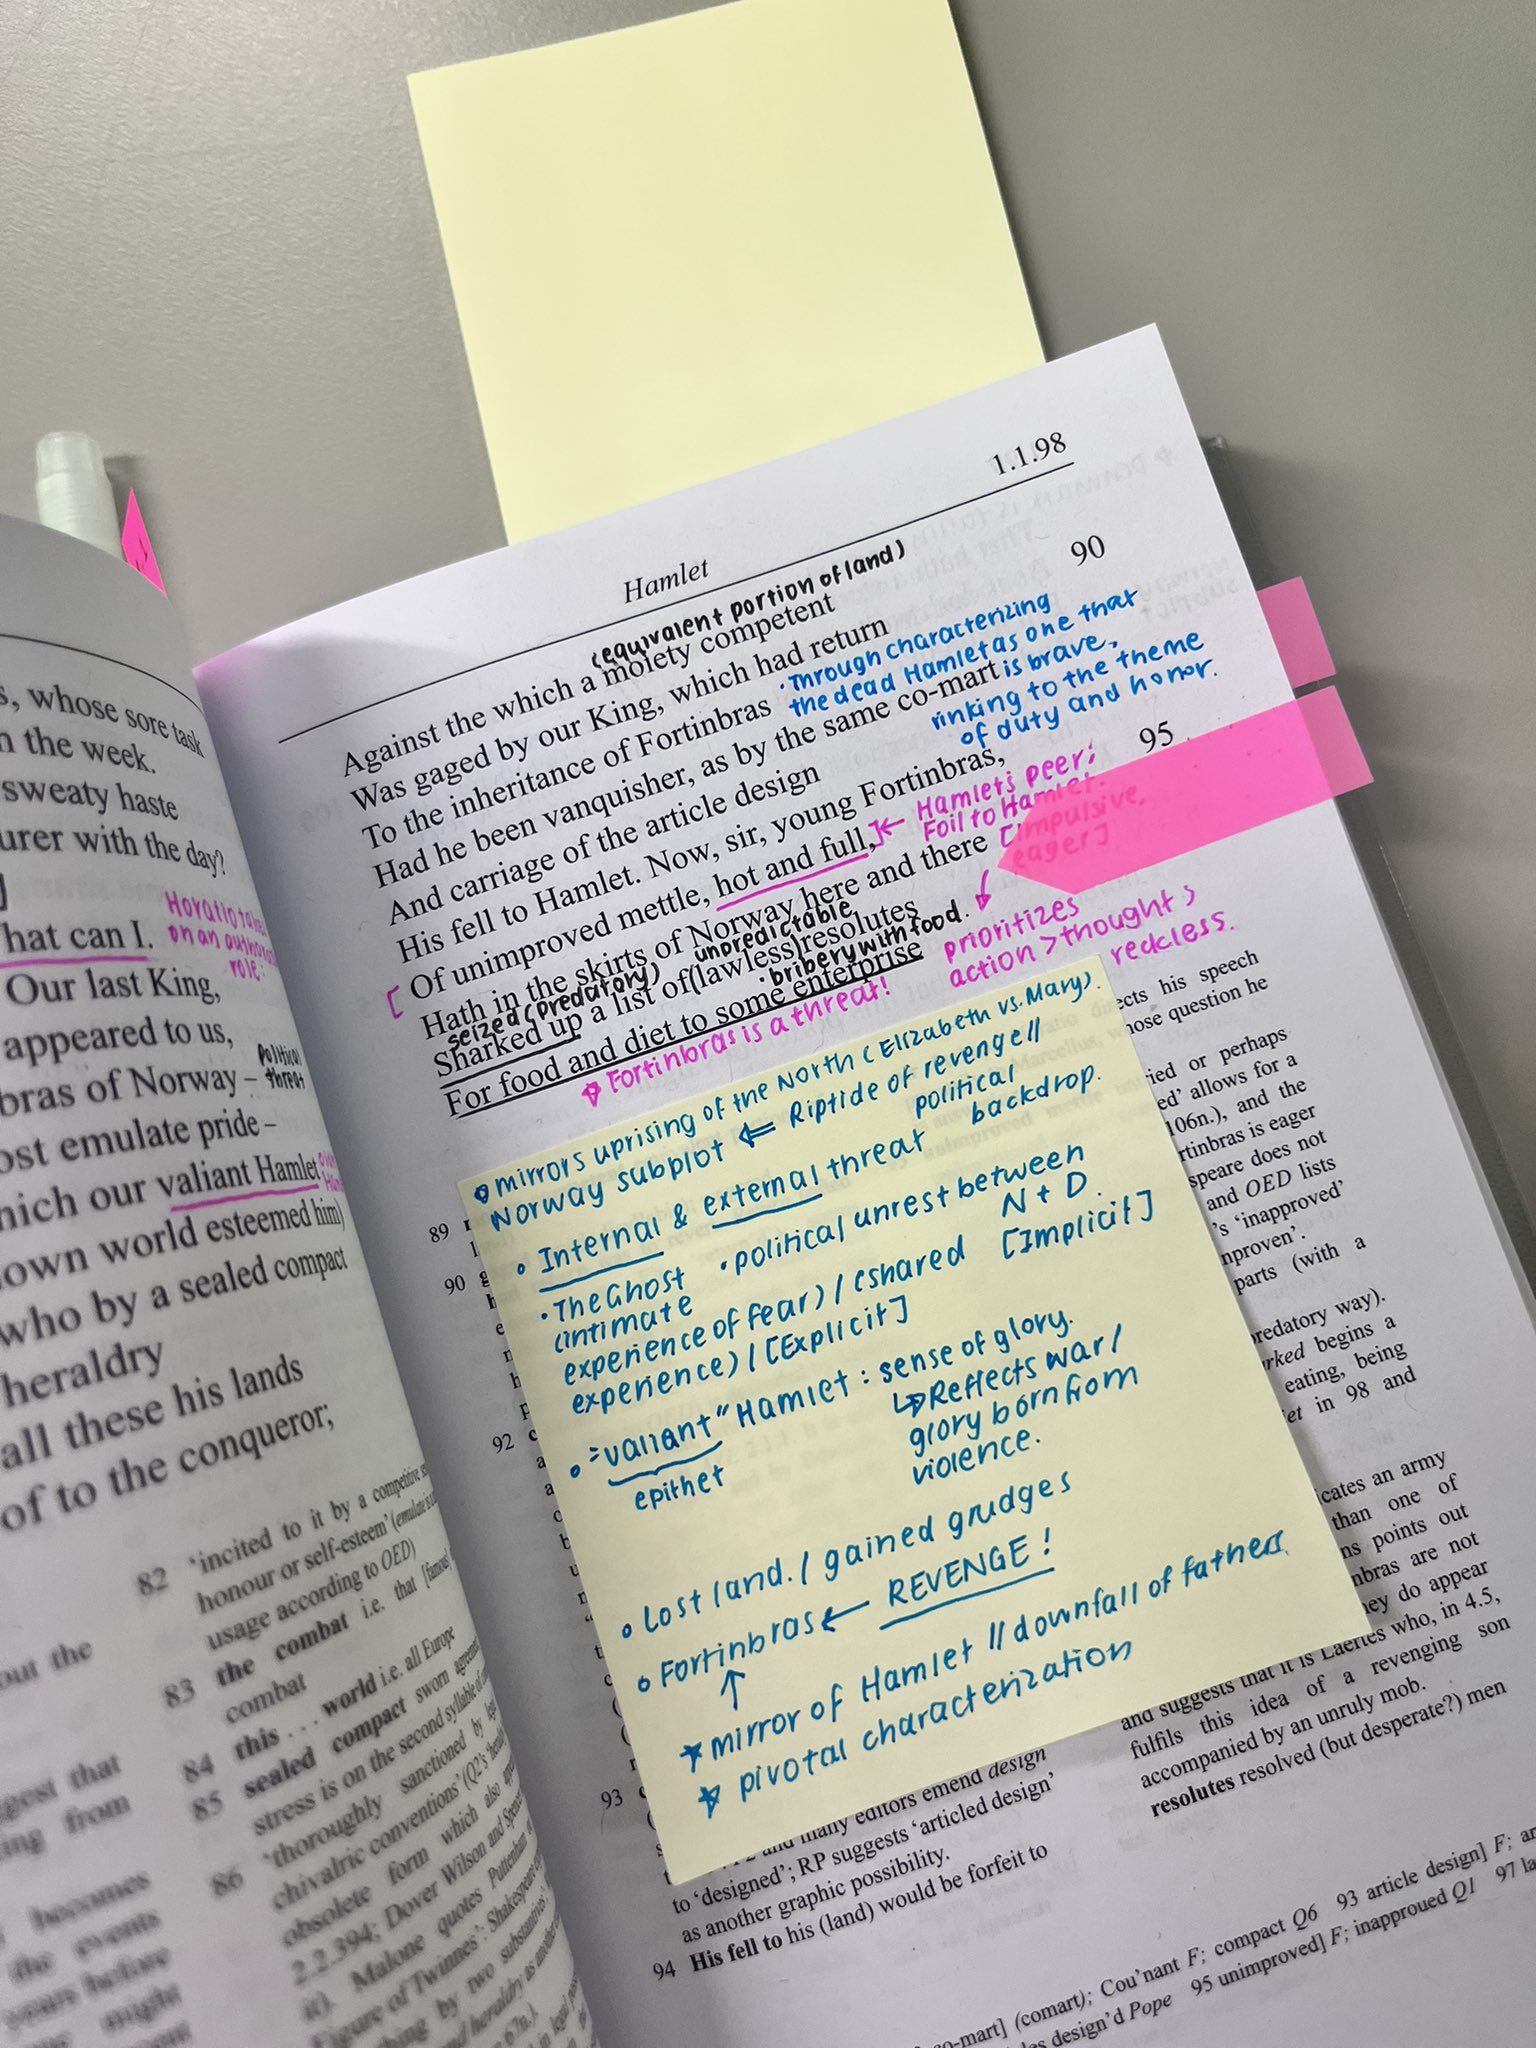 s, whose sore task
n the week.
sweaty haste
urer with the day?
]
hat can I.
Horatio
on an
role.
Our last King,
appeared to us,
bras of Norway –
political
threat
ost emulate pride –
hich our valiant Hamlet
own world esteemed him)
who by a sealed compact
heraldry
all these his lands
of to the conqueror;
82 'incited to it by a competitive
honour or self-esteem' (emulate is
usage according to OED)
83 the combat i.e. that [famous]
combat
84 this . . . world i.e. all Europe
85 sealed compact sworn agreement
stress is on the second syllable of
86 'thoroughly sanctioned by
chivalric conventions' (Q2's
obsolete form which also
2.2.394; Dover Wilson and
it). Malone quotes Puttenham
Figure of Twinnes': Shakespeare
by two substantives'
and heraldry as
out the
ggest that
ing from
becomes
the events
years before
might
Hamlet
1.1.98
(equivalent portion of land)
Against the which a moiety competent
90
Was gaged by our King, which had return
To the inheritance of Fortinbras
• Through characterizing
the dead Hamlet as one that
is brave,
linking to the theme
of duty and honor.
Had he been vanquisher, as by the same co-mart
And carriage of the article design
His fell to Hamlet. Now, sir, young Fortinbras,
95
[ Of unimproved mettle, hot and full, ]
← Hamlet's peer;
Foil to Hamlet.
[impulsive,
eager]
prioritizes
action > thought >
reckless.
Hath in the skirts of Norway here and there
seized (predatory)
unpredictable
Sharked up a list of (lawless) resolutes
• bribery with food.
For food and diet to some enterprise
Fortinbras is a threat!
mirrors uprising of the North (Elizabeth vs. Mary).
Norway subplot ⇐ Riptide of revenge //
political
backdrop.
• Internal & external threat
• The Ghost
(intimate
experience of fear) / (shared
experience) / [Explicit]
• political unrest between
N + D
[Implicit]
• "valiant" Hamlet : sense of glory.
epithet
↳ Reflects war /
glory born from
violence.
• Lost land. / gained grudges
• Fortinbras ← REVENGE!
↑
★ mirror of Hamlet // downfall of fathers
★ pivotal characterization
89
90
92
93
design
and many editors emend design
to 'designed'; RP suggests 'articled design'
as another graphic possibility.
94 His fell to his (land) would be forfeit to
ects his speech
hose question he
Marcellus,
ied or perhaps
ed' allows for a
106n.), and the
rtinbras is eager
speare does not
and OED lists
's 'inapproved'
nproven'.
parts (with a
predatory way).
rked begins a
eating, being
et in 98 and
cates an army
than one of
ns points out
nbras are not
ey do appear
and suggests that it is Laertes who, in 4.5,
fulfils this idea of a revenging son
accompanied by an unruly mob.
resolutes resolved (but desperate?) men
co-mart] (comart); Cou'nant F; compact Q6 93 article design] F;
design'd Pope 95 unimproved] F; inapproued Q1 97